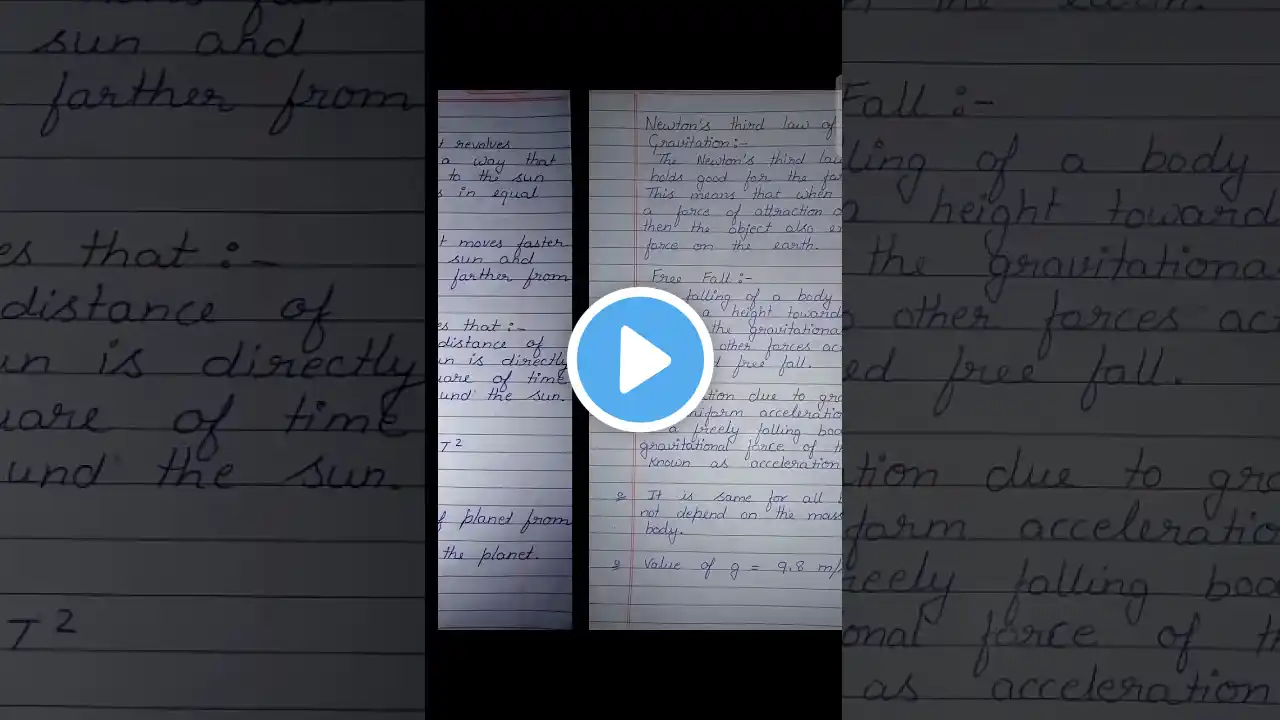 sun and
farther from
es that :-
distance of
un is directly
uare of time
und the sun.
T²
t revolves
a way that
to the sun
s in equal
t moves faster
sun and
farther from
es that :-
distance of
un is directly
uare of time
und the sun.
T²
f planet from
the planet.
Newton's third law of
Gravitation :-
The Newton's third law
holds good for the
This means that when
a force of attraction
then the object also
force on the earth.
Free Fall :-
falling of a body
a height towards
the gravitational
other forces ac
d free fall.
tion due to gra
iform acceleration
a freely falling bod
gravitational force of th
known as acceleration
It is same for all
not depend on the mass
body.
Value of g = 9.8 m/
Fall :-
ling of a body
a height toward
the gravitationa
other forces ac
ed free fall.
tion due to gra
form acceleratio
reely falling boo
onal force of t
as acceleration